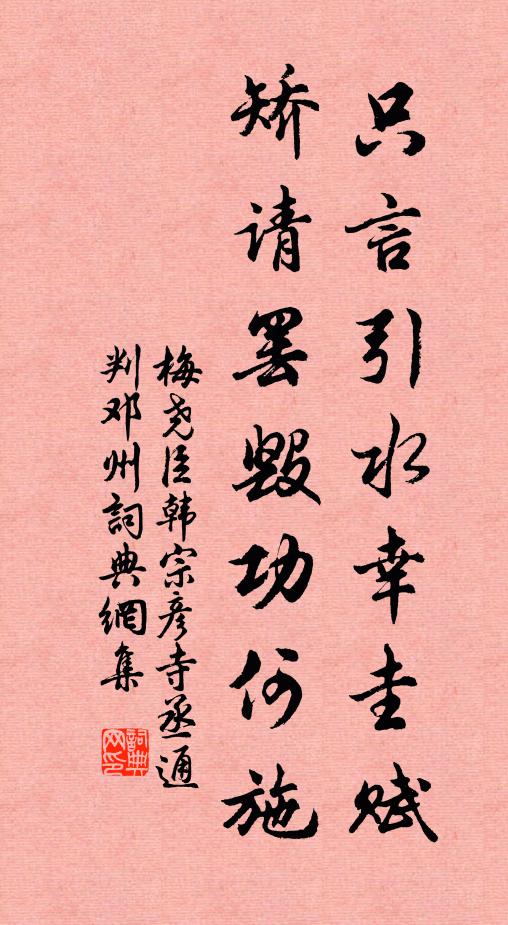 只言引水幸圭赋
矫请罢毁功何施
梅尧臣韩宗彦寺丞通
判邓州詞典網集
詞典网印